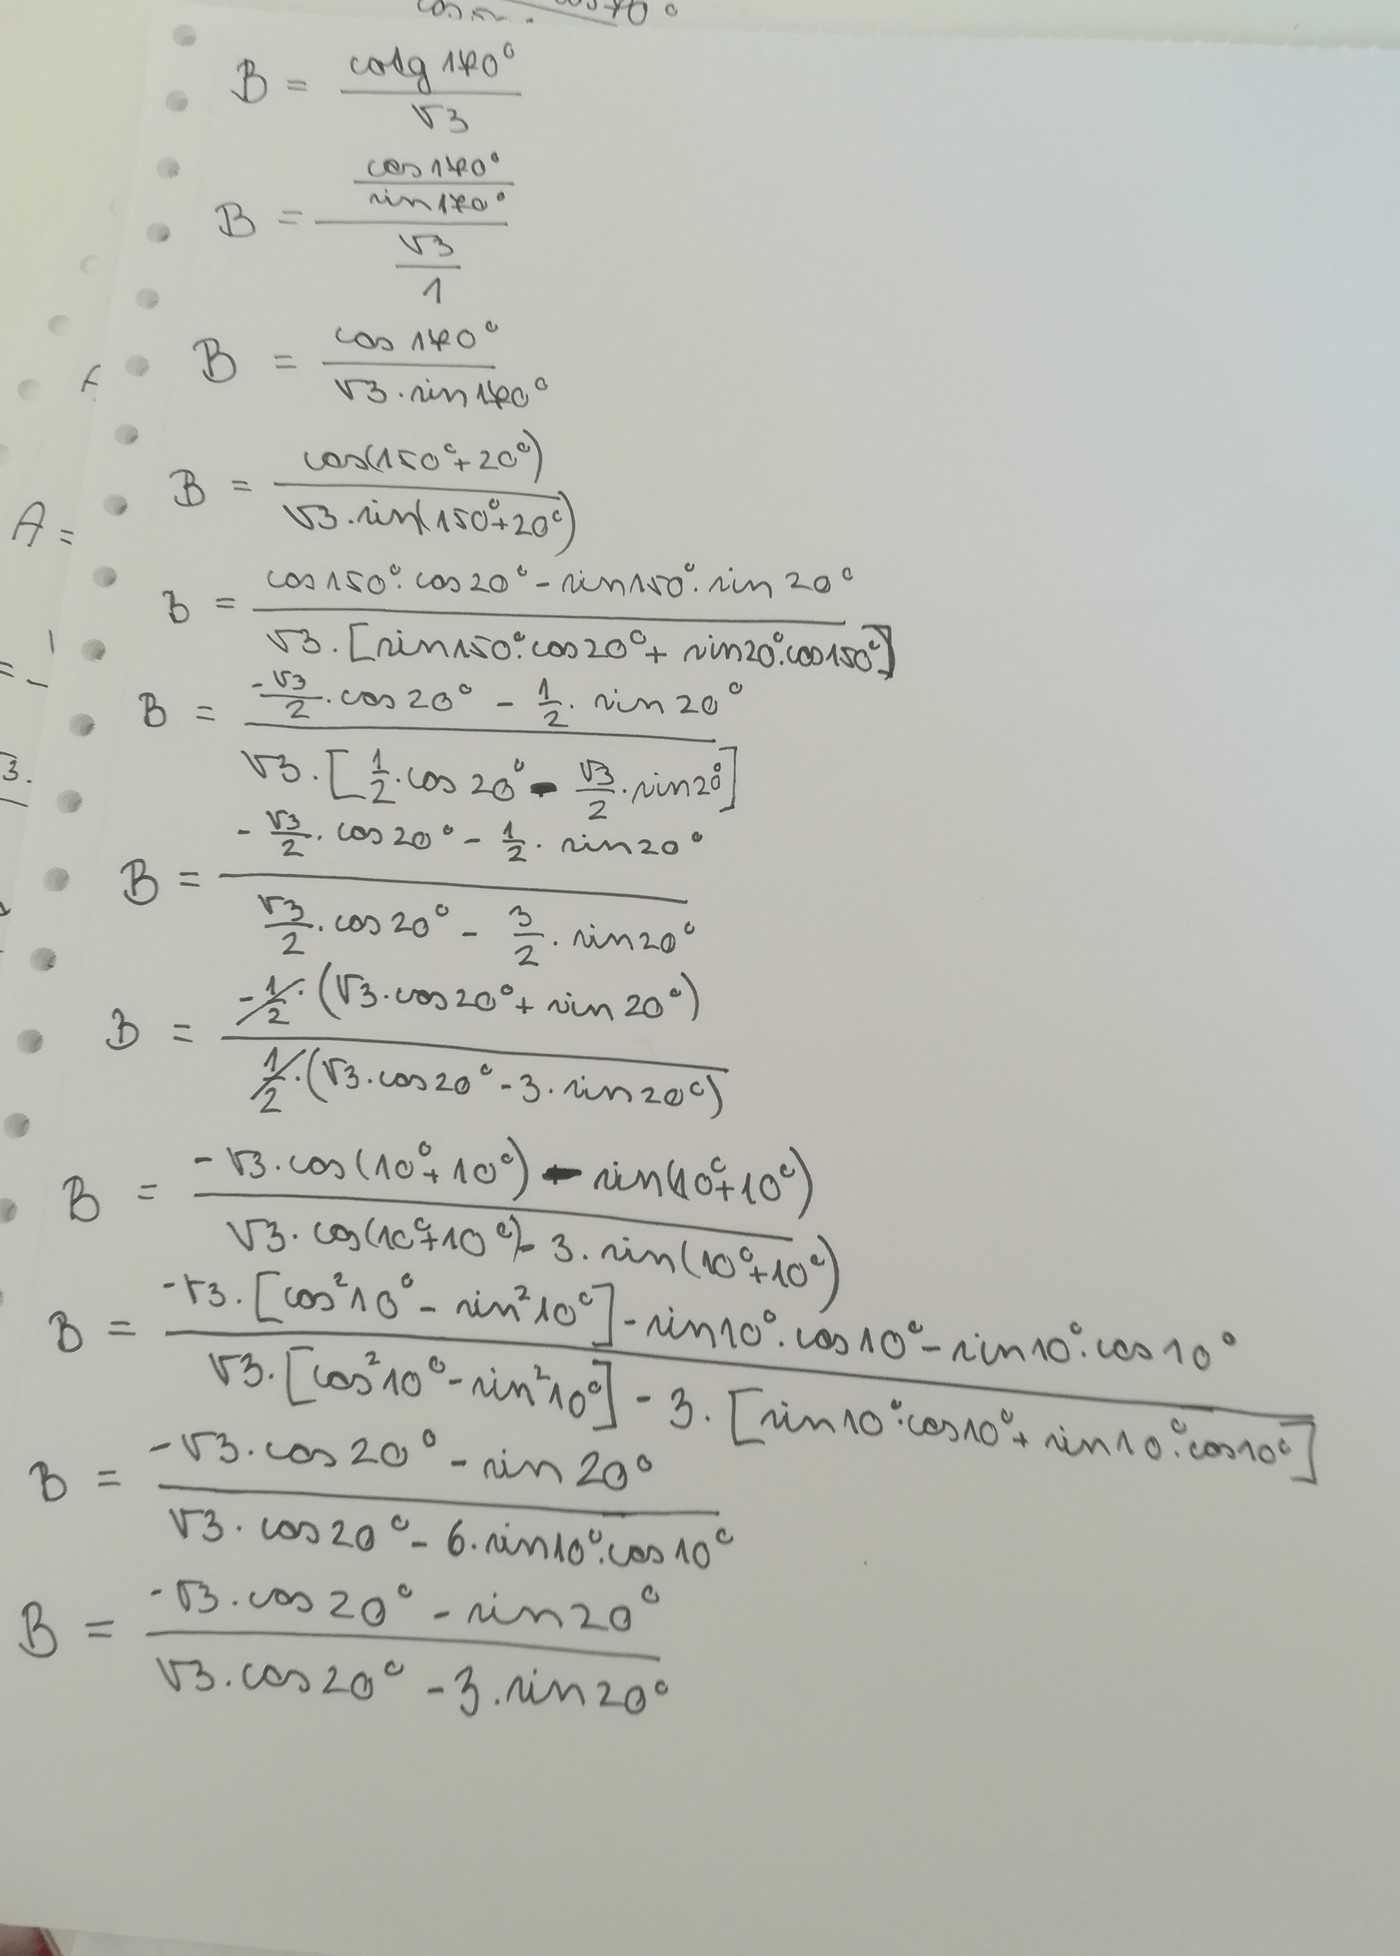 cos70°
B = cotg170° / √3
B = (cos170° / sin170°) / (√3 / 1)
B = cos170° / √3·sin170°
B = cos(150°+20°) / √3·sin(150°+20°)
A =
B = cos150°·cos20° - sin150°·sin20° / √3·[sin150°·cos20° + sin20°·cos150°]
B = -√3/2·cos20° - 1/2·sin20° / √3·[1/2·cos20° - √3/2·sin20°]
B = -√3/2·cos20° - 1/2·sin20° / √3/2·cos20° - 3/2·sin20°
B = -1/2·(√3·cos20° + sin20°) / 1/2·(√3·cos20° - 3·sin20°)
B = -√3·cos(10°+10°) - sin(10°+10°) / √3·cos(10°+10°) - 3·sin(10°+10°)
B = -√3·[cos²10° - sin²10°] - sin10°·cos10° - sin10°·cos10° / √3·[cos²10° - sin²10°] - 3·[sin10°·cos10° + sin10°·cos10°]
B = -√3·cos20° - sin20° / √3·cos20° - 6·sin10°·cos10°
B = -√3·cos20° - sin20° / √3·cos20° - 3·sin20°